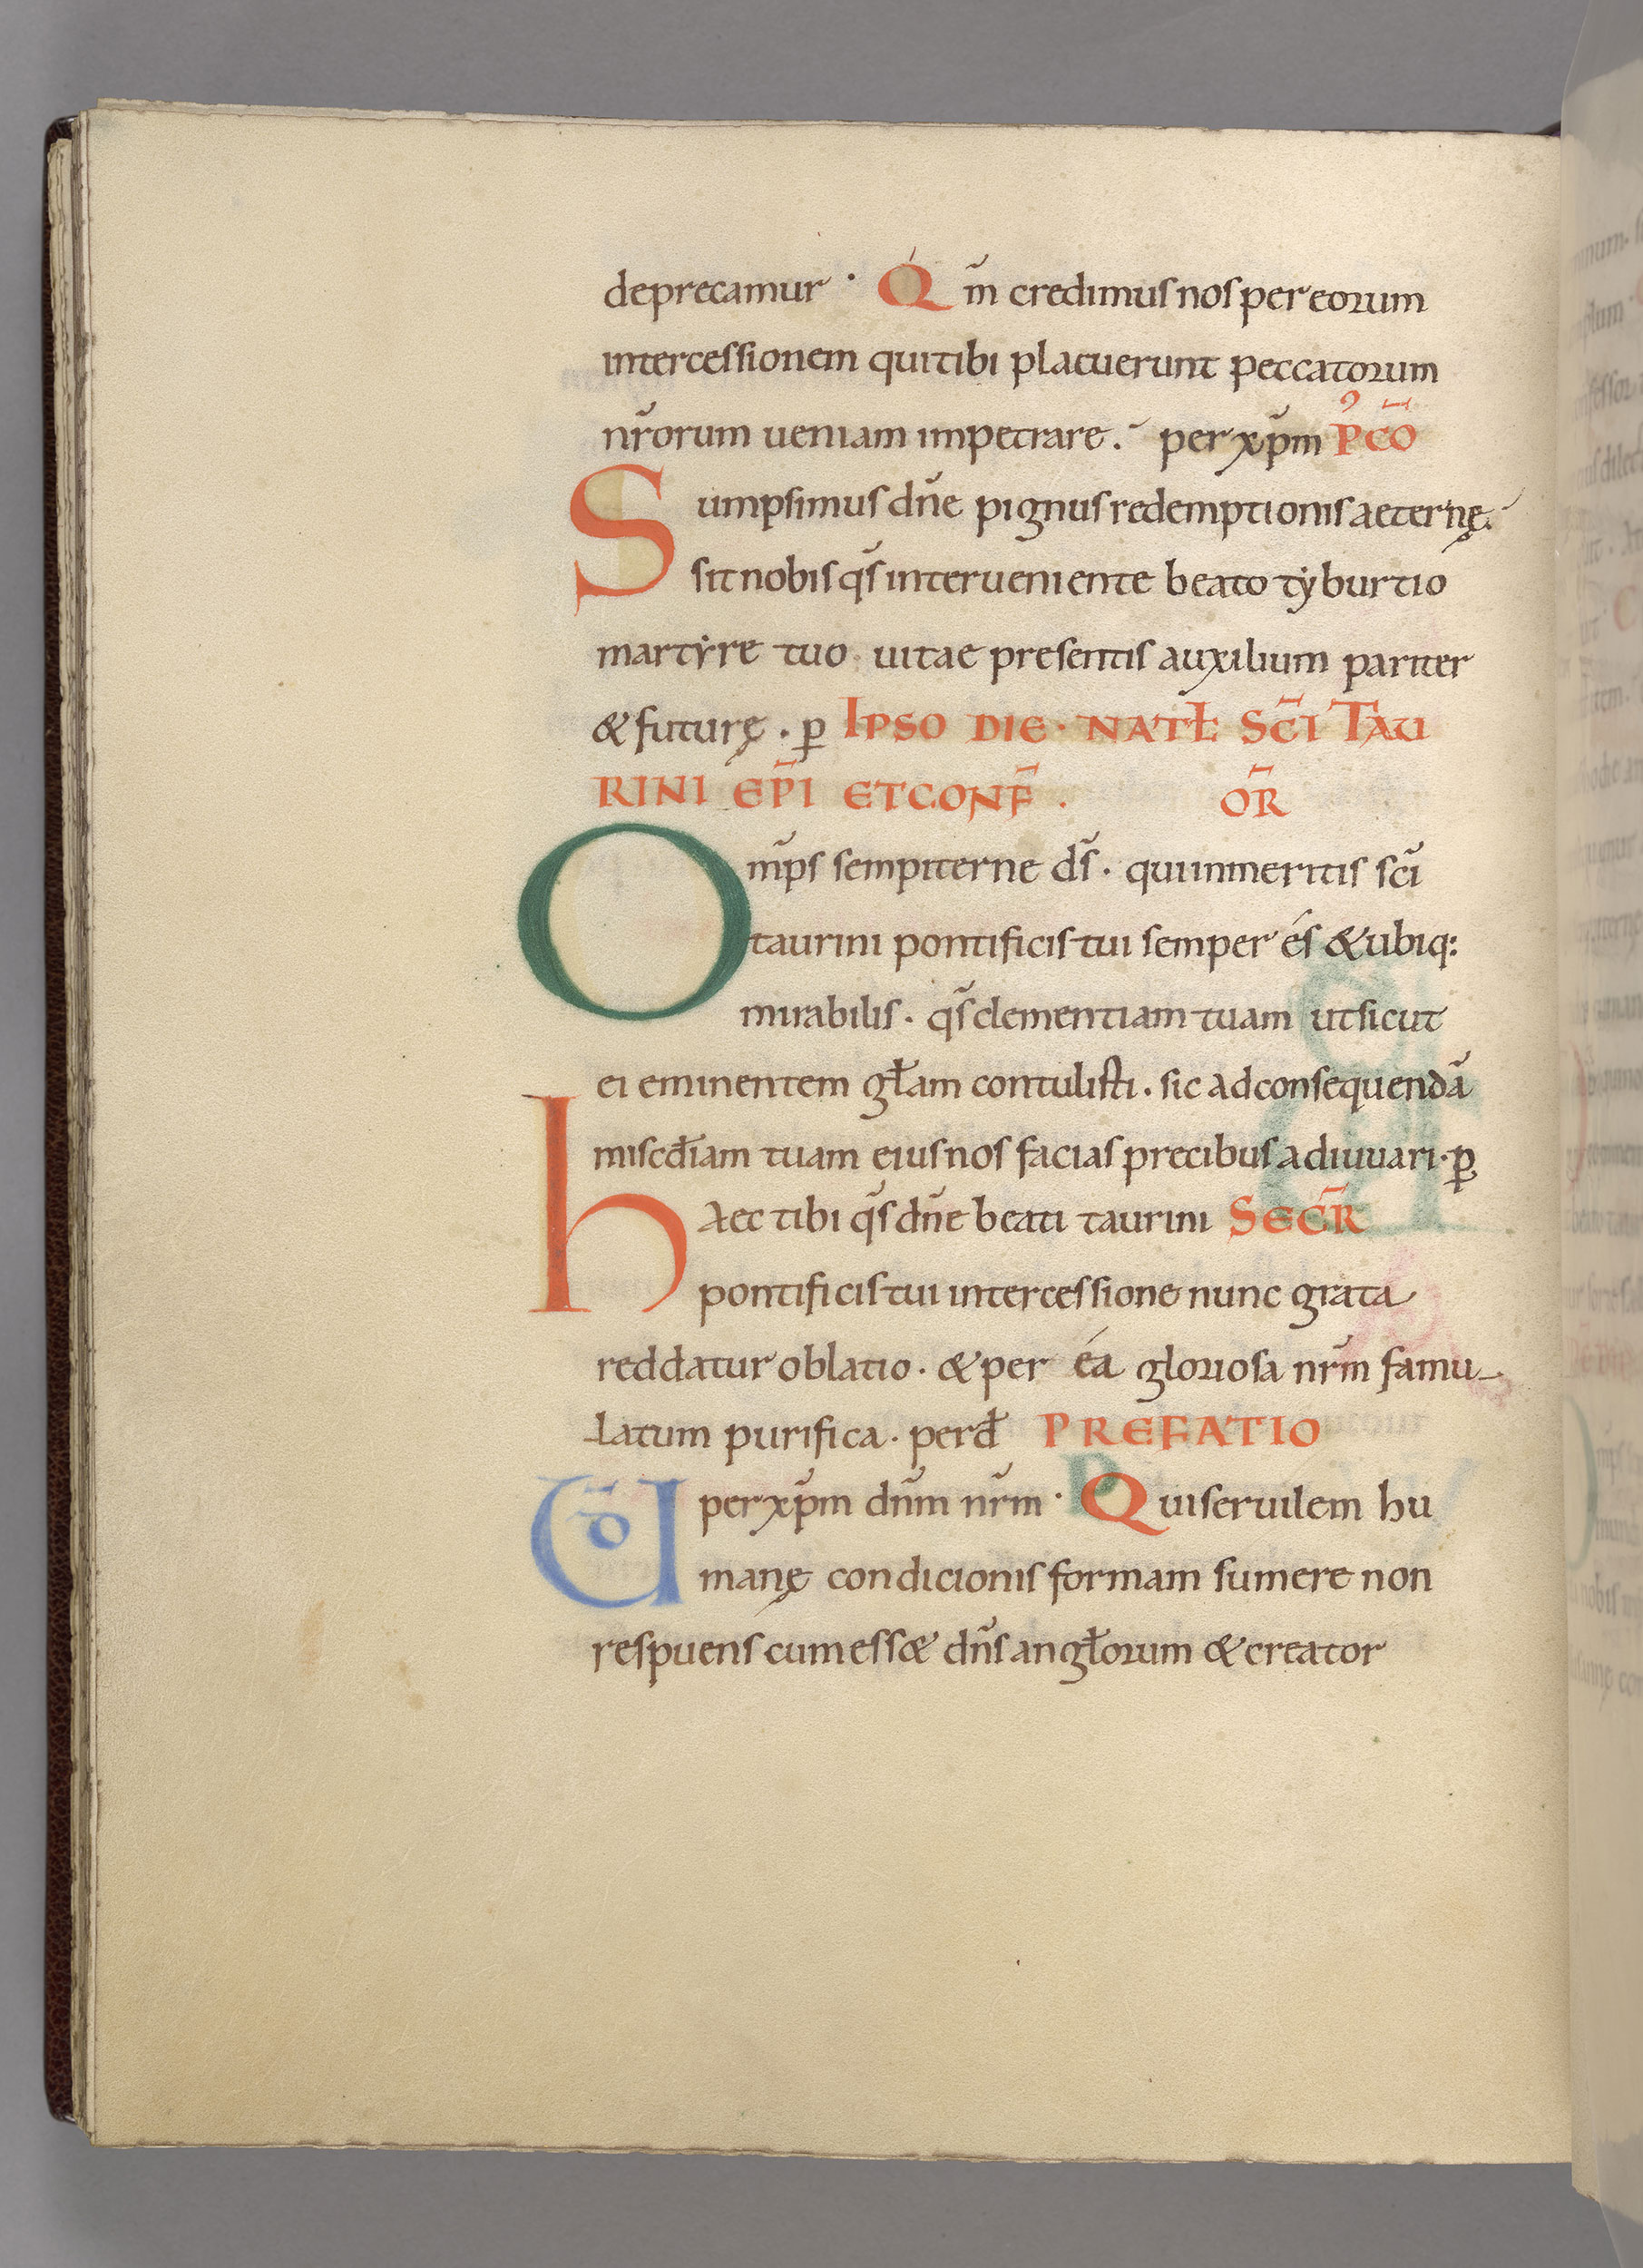 deprecamur · Qm̃ credimus nos per eorum
intercessionem qui tibi placuerunt peccatorum
nr̃orum ueniam impetrare. per xp̃m P᾽cō
Sumpsimus dñe pignus redemptionis aeternę.
sit nobis qs̃ interueniente beato tẏburtio
martẏre tuo uitae presentis auxilium pariter
& futurę . ꝑ IPSO DIE · NATL̄ SC̄I TAU
RINI EP̄I ET CONF̄ . OR̄
Om̃ps sempiterne ds̃ . qui inmeritis sc̃i
taurini pontificis tui semper és & ubiq:
mirabilis . qs̃ clementiam tuam ut sicut
ei eminentem gł̄am contulisti . sic ad consequendã
miscđiam tuam eius nos facias precibus adiuuari . ꝑ
hAec tibi qs̃ dñe beati taurini SECR̄
pontificis tui intercessione nunc grata
reddatur oblatio . & per éa gloriosa nr̃m famu-
-latum purifica . per đ PREFATIO
UD̄ per xp̃m dñm nr̃m · Qui seruilem hu
manę condicionis formam sumere non
respuens cum ess& dñs angłorum & creator